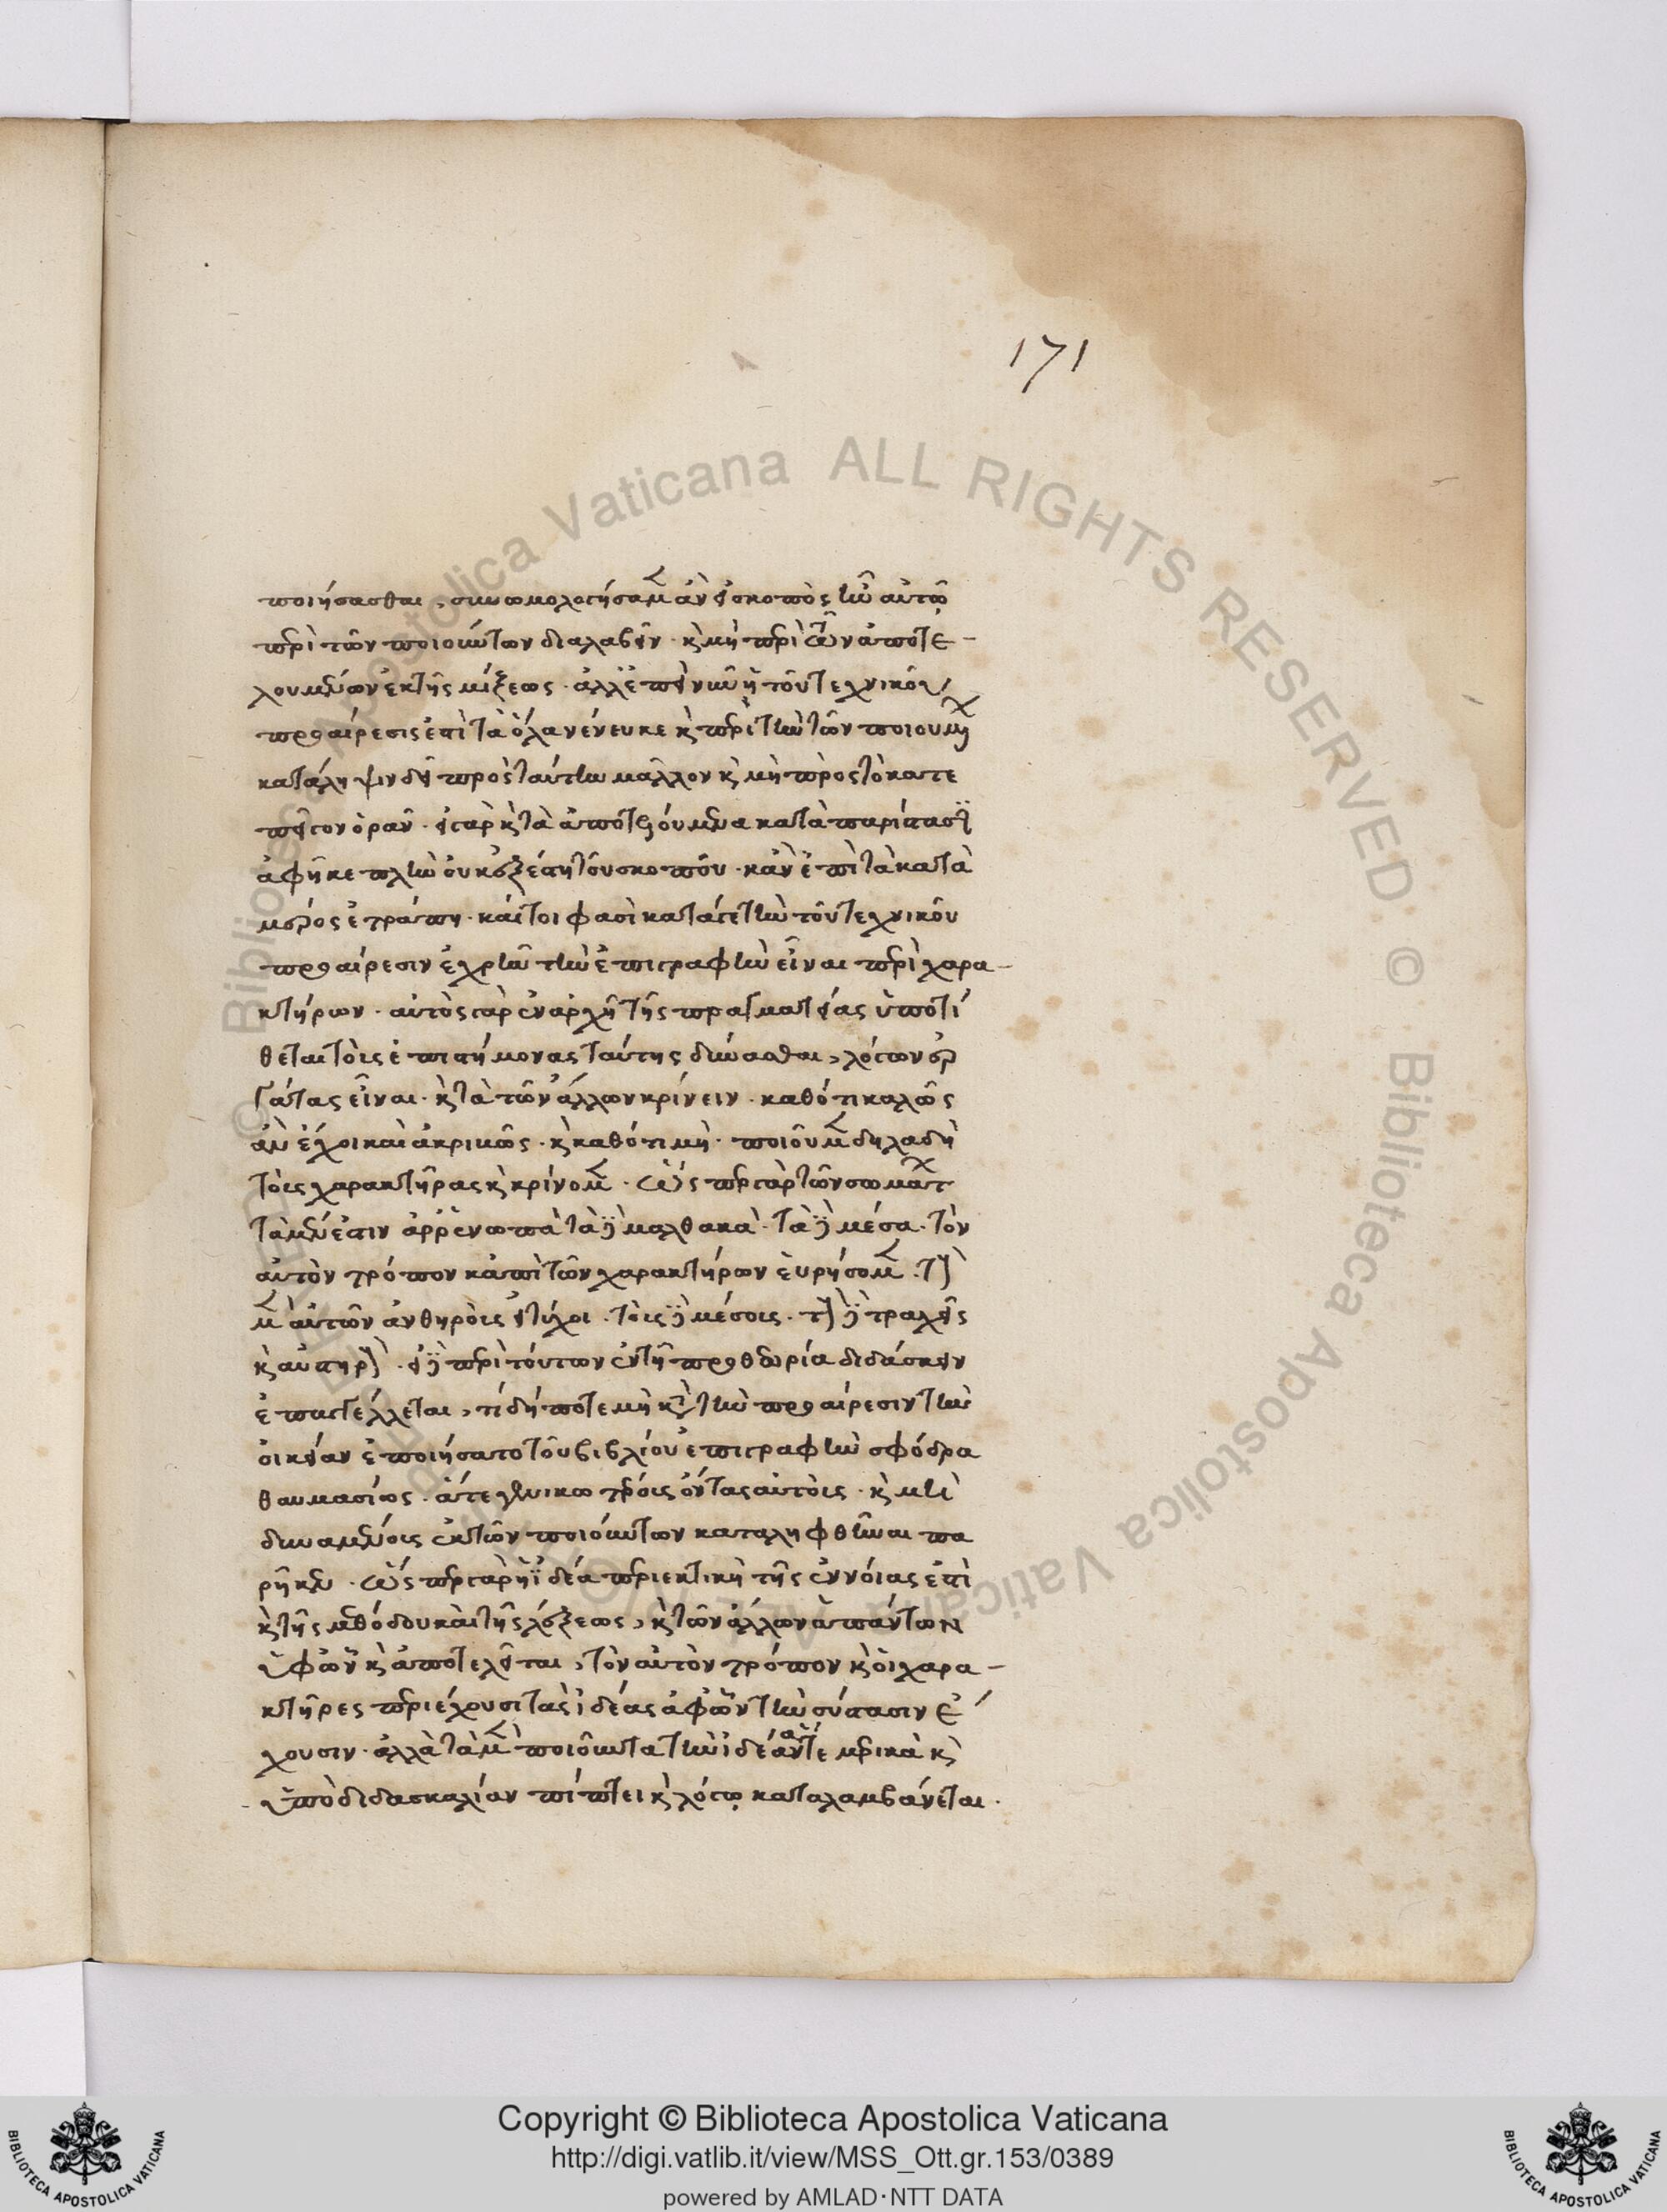 171
ποιήσασθαι, συνωμολογήσαμεν ἂν εἰ σκοπὸς ἦν αὐτῷ
περὶ τῶν ποιούντων διαλαβεῖν· καὶ μὴ περὶ τῶν ἀποτε-
λουμένων ἐκ τῆς μίξεως· ἀλλ' ἐπεὶ νῦν ἡ τοῦ τεχνικοῦ
προαίρεσις ἐπὶ τὰ ὅλα νένευκε καὶ περὶ τὴν τῶν ποιουμένων
κατάληψιν δεῖ πρὸς ταύτην μᾶλλον καὶ μὴ πρὸς τὸ κατε
πεῖγον ὁρᾶν· εἰ γὰρ καὶ τὰ ἀποτελούμενα κατὰ παρίπασιν
ἀφῆκε πλὴν οὐκ ἐξέστη τοῦ σκοποῦ· κἂν ἐπὶ τὰ κατὰ
μέρος ἐτράπη· καίτοι φασὶ κατά γε τὴν τοῦ τεχνικοῦ
προαίρεσιν ἐχρῆν τὴν ἐπιγραφὴν εἶναι περὶ χαρα-
κτήρων· αὐτὸς γὰρ ἐν ἀρχῇ τῆς πραγματείας ὑποτί
θεται τοὺς ἐπιστήμονας ταύτης δύνασθαι, λόγων ἐρ
γάτας εἶναι· καὶ τὰ τῶν ἄλλων κρίνειν· καθότι καλῶς
ἂν ἔχοι καὶ ἀκριβῶς· καὶ καθότι μὴ· ποιοῦμεν δηλαδὴ
τοὺς χαρακτῆρας καὶ κρίνομεν· ὥσπερ γὰρ τῶν σωμάτων
τὰ μέν ἐστιν ἀρρενωπὰ τὰ δὲ μαλθακὰ· τὰ δὲ μέσα· τὸν
αὐτὸν τρόπον κἀπὶ τῶν χαρακτήρων εὑρήσομεν· τοὺς
μὲν αὐτῶν ἀνθηροὺς εἰ τύχοι· τοὺς δὲ μέσους· τοὺς δὲ τραχεῖς
καὶ αὐστηροὺς· εἰ δὲ περὶ τούτων ἐν τῇ προθεωρίᾳ διδάσκειν
ἐπαγγέλλεται, τί δήποτε μὴ κατὰ τὴν προαίρεσιν τὴν
οἰκείαν ἐποιήσατο τοῦ βιβλίου ἐπιγραφὴν σφόδρα
θαυμασίως· ἅτε γενικωτέρους ὄντας αὐτοὺς· καὶ μὴ
δυναμένους ἐκ τῶν ποιούντων καταληφθῆναι πα
ρῆκεν· ὥσπερ γὰρ ἡ ἰδέα περιεκτικὴ τῆς ἐννοίας ἐστὶ
καὶ τῆς μεθόδου καὶ τῆς λέξεως, καὶ τῶν ἄλλων ἁπάντων
ὑφ' ὧν καὶ ἀποτελεῖται, τὸν αὐτὸν τρόπον καὶ οἱ χαρα-
κτῆρες περιέχουσι τὰς ἰδέας ἀφ' ὧν τὴν σύστασιν ἔ
χουσιν· ἀλλὰ τὰ μὲν ποιοῦντα τὴν ἰδέαν ἅτε μερικὰ καὶ
ὑπὸ διδασκαλίαν πίπτει καὶ λόγῳ καταλαμβάνεται·
Copyright © Biblioteca Apostolica Vaticana
http://digi.vatlib.it/view/MSS_Ott.gr.153/0389
powered by AMLAD·NTT DATA
BIBLIOTECA APOSTOLICA VATICANA
BIBLIOTECA APOSTOLICA VATICANA
© Biblioteca Apostolica Vaticana ALL RIGHTS RESERVED